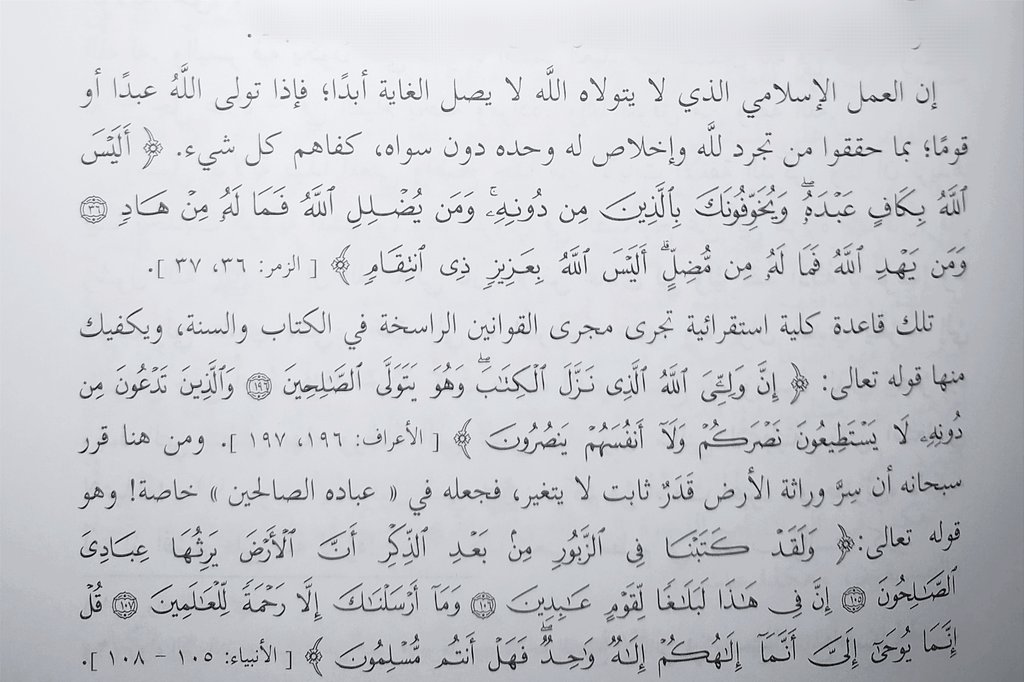 إن العمل الإسلامي الذي لا يتولاه اللَّه لا يصل الغاية أبدًا؛ فإذا تولى اللَّهُ عبدًا أو
قومًا؛ بما حققوا من تجرد للَّه وإخلاص له وحده دون سواه، كفاهم كل شيء. ﴿ أَلَيْسَ
ٱللَّهُ بِكَافٍ عَبْدَهُۥۖ وَيُخَوِّفُونَكَ بِٱلَّذِينَ مِن دُونِهِۦۚ وَمَن يُضْلِلِ ٱللَّهُ فَمَا لَهُۥ مِنْ هَادٍ ۝٣٦
وَمَن يَهْدِ ٱللَّهُ فَمَا لَهُۥ مِن مُّضِلٍّۗ أَلَيْسَ ٱللَّهُ بِعَزِيزٍ ذِى ٱنتِقَامٍ ﴾ [ الزمر: ٣٦، ٣٧ ].
تلك قاعدة كلية استقرائية تجرى مجرى القوانين الراسخة في الكتاب والسنة، ويكفيك
منها قوله تعالى: ﴿ إِنَّ وَلِـِّۧىَ ٱللَّهُ ٱلَّذِى نَزَّلَ ٱلْكِتَٰبَۖ وَهُوَ يَتَوَلَّى ٱلصَّٰلِحِينَ ۝١٩٦ وَٱلَّذِينَ تَدْعُونَ مِن
دُونِهِۦ لَا يَسْتَطِيعُونَ نَصْرَكُمْ وَلَآ أَنفُسَهُمْ يَنصُرُونَ ﴾ [ الأعراف: ١٩٦، ١٩٧ ]. ومن هنا قرر
سبحانه أن سِرَّ وراثة الأرض قَدَرٌ ثابت لا يتغير، فجعله في « عباده الصالحين » خاصة! وهو
قوله تعالى:﴿ وَلَقَدْ كَتَبْنَا فِى ٱلزَّبُورِ مِنۢ بَعْدِ ٱلذِّكْرِ أَنَّ ٱلْأَرْضَ يَرِثُهَا عِبَادِىَ
ٱلصَّٰلِحُونَ ۝١٠٥ إِنَّ فِى هَٰذَا لَبَلَٰغًا لِّقَوْمٍ عَٰبِدِينَ ۝١٠٦ وَمَآ أَرْسَلْنَٰكَ إِلَّا رَحْمَةً لِّلْعَٰلَمِينَ ۝١٠٧ قُلْ
إِنَّمَا يُوحَىٰٓ إِلَىَّ أَنَّمَآ إِلَٰهُكُمْ إِلَٰهٌ وَٰحِدٌۖ فَهَلْ أَنتُم مُّسْلِمُونَ ﴾ [ الأنبياء: ١٠٥ - ١٠٨ ].